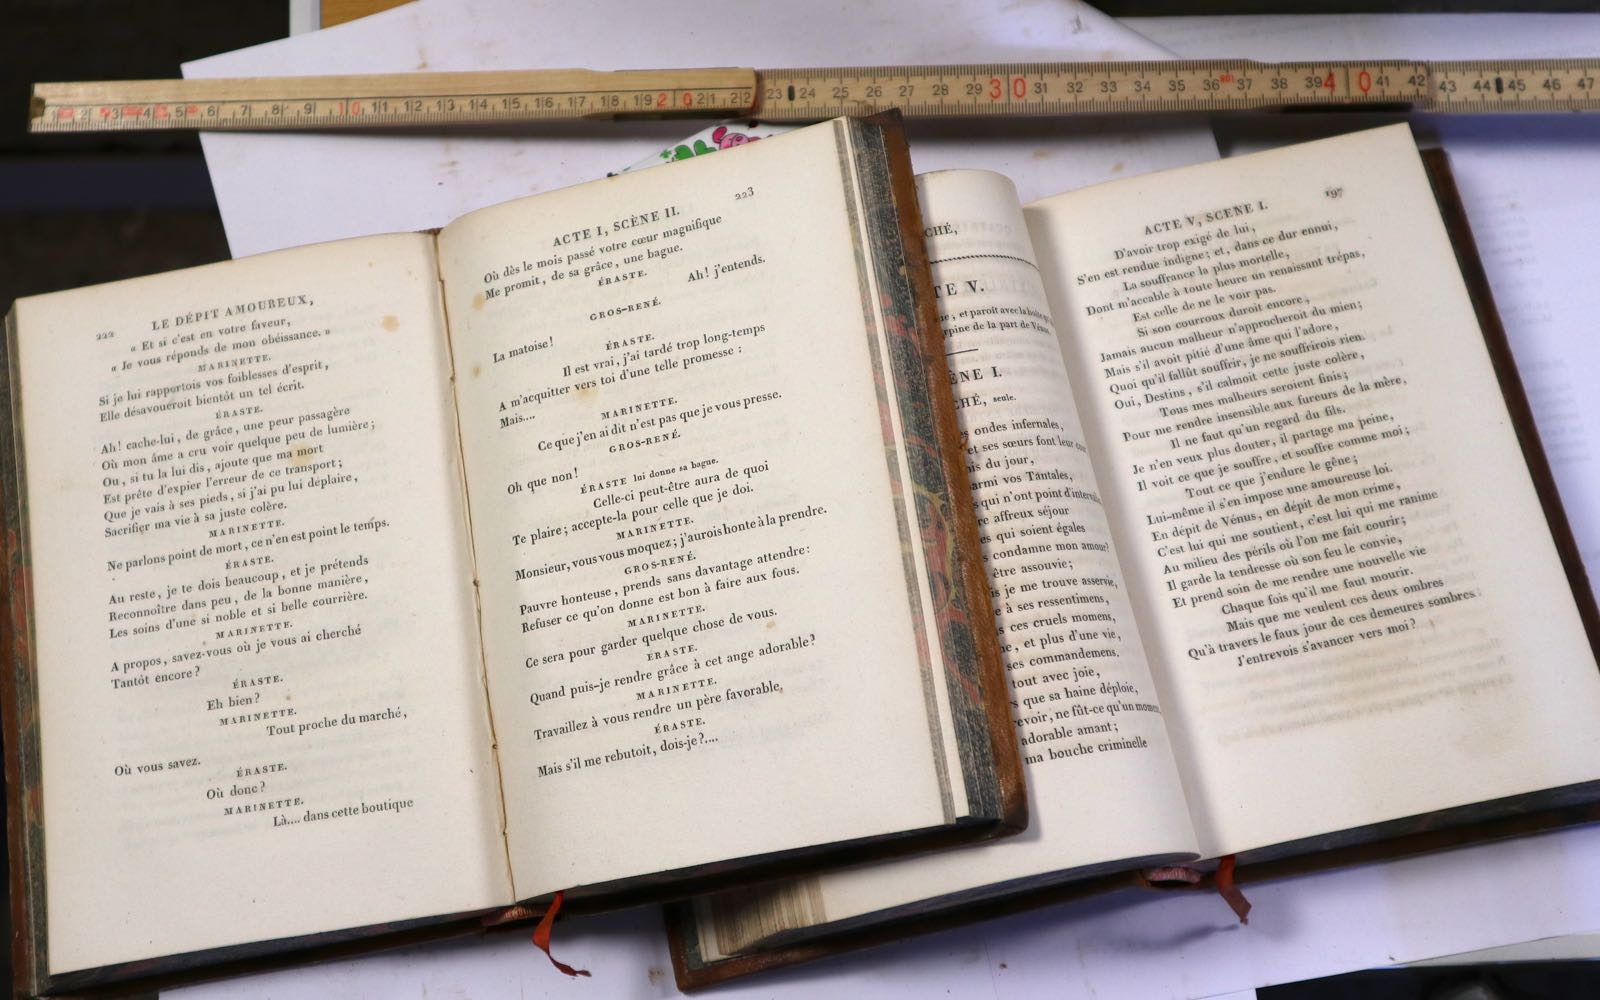 1 2 3 4 5 6 7 8 9 10 11 12 13 14 15 16 17 18 19 20 21 22 23 24 25 26 27 28 29 30 31 32 33 34 35 36 37 38 39 40 41 42 43 44 45 46 47
222
LE DÉPIT AMOUREUX,
« Et si c'est en votre faveur,
« Je vous réponds de mon obéissance. »
MARINETTE.
Si je lui rapportois vos foiblesses d'esprit,
Elle désavoueroit bientôt un tel écrit.
ÉRASTE.
Ah! cache-lui, de grâce, une peur passagère
Où mon âme a cru voir quelque peu de lumière;
Ou, si tu la lui dis, ajoute que ma mort
Est prête d'expier l'erreur de ce transport;
Que je vais à ses pieds, si j'ai pu lui déplaire,
Sacrifier ma vie à sa juste colère.
MARINETTE.
Ne parlons point de mort, ce n'en est point le temps.
ÉRASTE.
Au reste, je te dois beaucoup, et je prétends
Reconnoître dans peu, de la bonne manière,
Les soins d'une si noble et si belle courrière.
MARINETTE.
A propos, savez-vous où je vous ai cherché
Tantôt encore?
ÉRASTE.
Eh bien?
MARINETTE.
Tout proche du marché,
Où vous savez.
ÉRASTE.
Où donc?
MARINETTE.
Là.... dans cette boutique
ACTE I, SCÈNE II.
223
Où dès le mois passé votre cœur magnifique
Me promit, de sa grâce, une bague.
ÉRASTE.
Ah! j'entends.
GROS-RENÉ.
La matoise!
ÉRASTE.
Il est vrai, j'ai tardé trop long-temps
A m'acquitter vers toi d'une telle promesse:
Mais....
MARINETTE.
Ce que j'en ai dit n'est pas que je vous presse.
GROS-RENÉ.
Oh que non!
ÉRASTE lui donne sa bague.
Celle-ci peut-être aura de quoi
Te plaire; accepte-la pour celle que je doi.
MARINETTE.
Monsieur, vous vous moquez; j'aurois honte à la prendre.
GROS-RENÉ.
Pauvre honteuse, prends sans davantage attendre:
Refuser ce qu'on donne est bon à faire aux fous.
MARINETTE.
Ce sera pour garder quelque chose de vous.
ÉRASTE.
Quand puis-je rendre grâce à cet ange adorable?
MARINETTE.
Travaillez à vous rendre un père favorable,
ÉRASTE.
Mais s'il me rebutoit, dois-je?....
CHÉ,
TE V.
, et paroît avec la boîte
rpine de la part de Vénus.
ÈNE I.
CHÉ, seule.
ondes infernales,
et ses sœurs font leur
is du jour,
armi vos Tantales,
qui n'ont point d'
re affreux séjour
es qui soient égales
condamne mon amour?
être assouvie;
is je me trouve asservie,
e à ses ressentimens,
ces cruels momens,
e, et plus d'une vie,
ses commandemens.
tout avec joie,
que sa haine déploie,
revoir, ne fût-ce qu'un
adorable amant;
ma bouche criminelle
ACTE V, SCENE I.
197
D'avoir trop exigé de lui,
S'en est rendue indigne; et, dans ce dur ennui,
La souffrance la plus mortelle,
Dont m'accable à toute heure un renaissant trépas,
Est celle de ne le voir pas.
Si son courroux duroit encore,
Jamais aucun malheur n'approcheroit du mien;
Mais s'il avoit pitié d'une âme qui l'adore,
Quoi qu'il fallût souffrir, je ne souffrirois rien.
Oui, Destins, s'il calmoit cette juste colère,
Tous mes malheurs seroient finis;
Pour me rendre insensible aux fureurs de la mère,
Il ne faut qu'un regard du fils.
Je n'en veux plus douter, il partage ma peine,
Il voit ce que je souffre, et souffre comme moi;
Tout ce que j'endure le gêne;
Lui-même il s'en impose une amoureuse loi.
En dépit de Vénus, en dépit de mon crime,
C'est lui qui me soutient, c'est lui qui me ranime
Au milieu des périls où l'on me fait courir;
Il garde la tendresse où son feu le convie,
Et prend soin de me rendre une nouvelle vie
Chaque fois qu'il me faut mourir.
Mais que me veulent ces deux ombres
Qu'à travers le faux jour de ces demeures sombres
J'entrevois s'avancer vers moi?